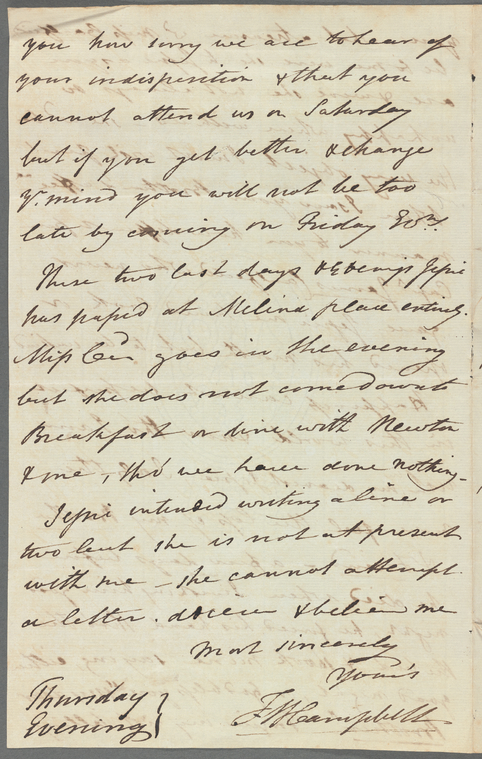 you how sorry we are to hear of
your indisposition & that you
cannot attend us on Saturday
but if you get better & change
yr. mind you will not be too
late by coming on Friday Evng.
These two last days & Evenings Jessie
has passed at Melina place entirely.
Miss goes in the evening
but she does not come down to
Breakfast or dine with Newton
& me, tho' we have done nothing -
Jessie intended writing a line or
two but she is not at present
with me - she cannot attempt
a letter. & believe me
Most sincerely
Your's
Thursday
Evening
Campbell